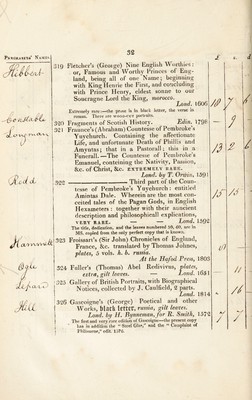 32
PURCHASERS' NAMES.
£ s. d.
Hibbert
319 Fletcher's (George) Nine English Worthies:
or, Famous and Worthy Princes of Eng-
land, being all of one Name; beginning
with King Henrie the First, and concluding
with Prince Henry, eldest sonne to our
Soueragne Lord the King, morocco.
Lond. 1606
10 7 6
Extremely rare—the prose is in black letter, the verse in
roman. There are wood-cut portraits.
Constable
320 Fragments of Scottish History. Edin. 1798
- 9
Longman
321 Fraunce's (Abraham) Countesse of Pembroke's
Yuychurch. Containing the affectionate
Life, and unfortunate Death of Phillis and
Amyntas; that in a Pastorall; this in a
Funerall.—The Countesse of Pembroke's
Emanuel, conteining the Nativity, Passion,
&c. of Christ, &c. EXTREMELY RARE.
Lond. by T. Orwin, 1591
13 2 6
Rodd
322 Third part of the Coun-
tesse of Pembroke's Yuychurch: entituled
Amintas Dale. Wherein are the most con-
ceited tales of the Pagan Gods, in English
Hexameters: together with their auncient
description and philosophicall explications,
VERY RARE. Lond. 1592
The title, dedication, and the leaves numbered 59, 60, are in
MS. copied from the only perfect copy that is known.
323 Froissart's (Sir John) Chronicles of England,
France, &c. translated by Thomas Johnes,
plates, 5 vols. h. b. russia.
At the Hafod Press, 1803
Ogle
324 Fuller's (Thomas) Abel Redivivus, plates,
extra, gilt leaves. Lond. 1651
Lepard
325 Gallery of British Portraits, with Biographical
Notices, collected by J. Caulfield, 2 parts.
Lond. 1814
- 16 -
Hill
326 Gascoigne's (George) Poetical and other
Works, black letter, russia, gilt leaves.
Lond. by H. Bynneman, for R. Smith, 1572
7 7
The first and very rare edition of Gascoigne—the present copy
has in addition the "Steel Glas," and the "Complaint of
Philomene," edit. 1576.